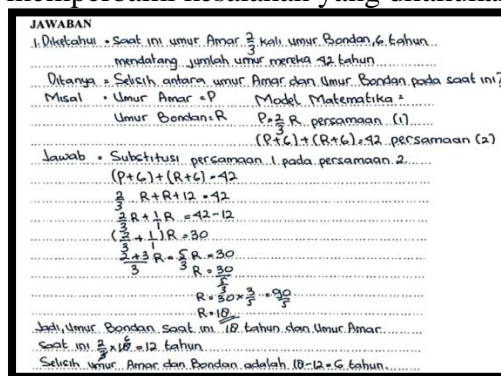 JAWABAN
1. Diketahui = Saat ini umur Amar 2/3 kali umur Bondan, 6 tahun
mendatang jumlah umur mereka 42 tahun
Ditanya = Selisih antara umur Amar dan Umur Bondan pada saat ini?
Misal = Umur Amar = P Model Matematika =
Umur Bondan = R P = 2/3 R persamaan (1)
(P+6) + (R+6) = 42 persamaan (2)
Jawab = Substitusi persamaan 1 pada persamaan 2
(P+6) + (R+6) = 42
2/3 R + R + 12 = 42
2/3 R + 1/1 R = 42 - 12
(2/3 + 1/1) R = 30
2+3/3 R = 5/3 R = 30
R = 30/5/3
R = 30 × 3/5 = 90/5
R = 18
Jadi, Umur Bondan saat ini 18 tahun dan Umur Amar
saat ini 2/3 × 18 6 = 12 tahun
Selisih umur Amar dan Bondan adalah 18 - 12 = 6 tahun